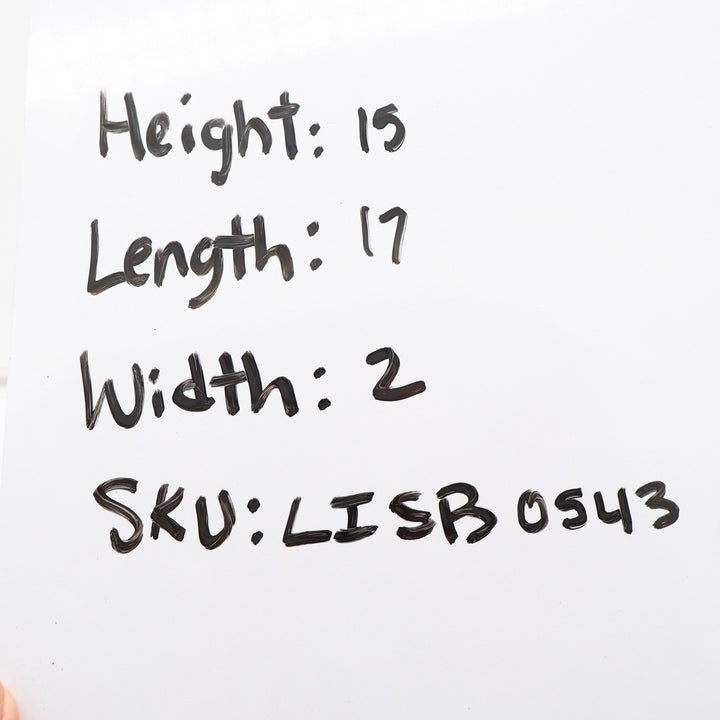 Height: 15
Length: 17
Width: 2
SKU: LISB 0543